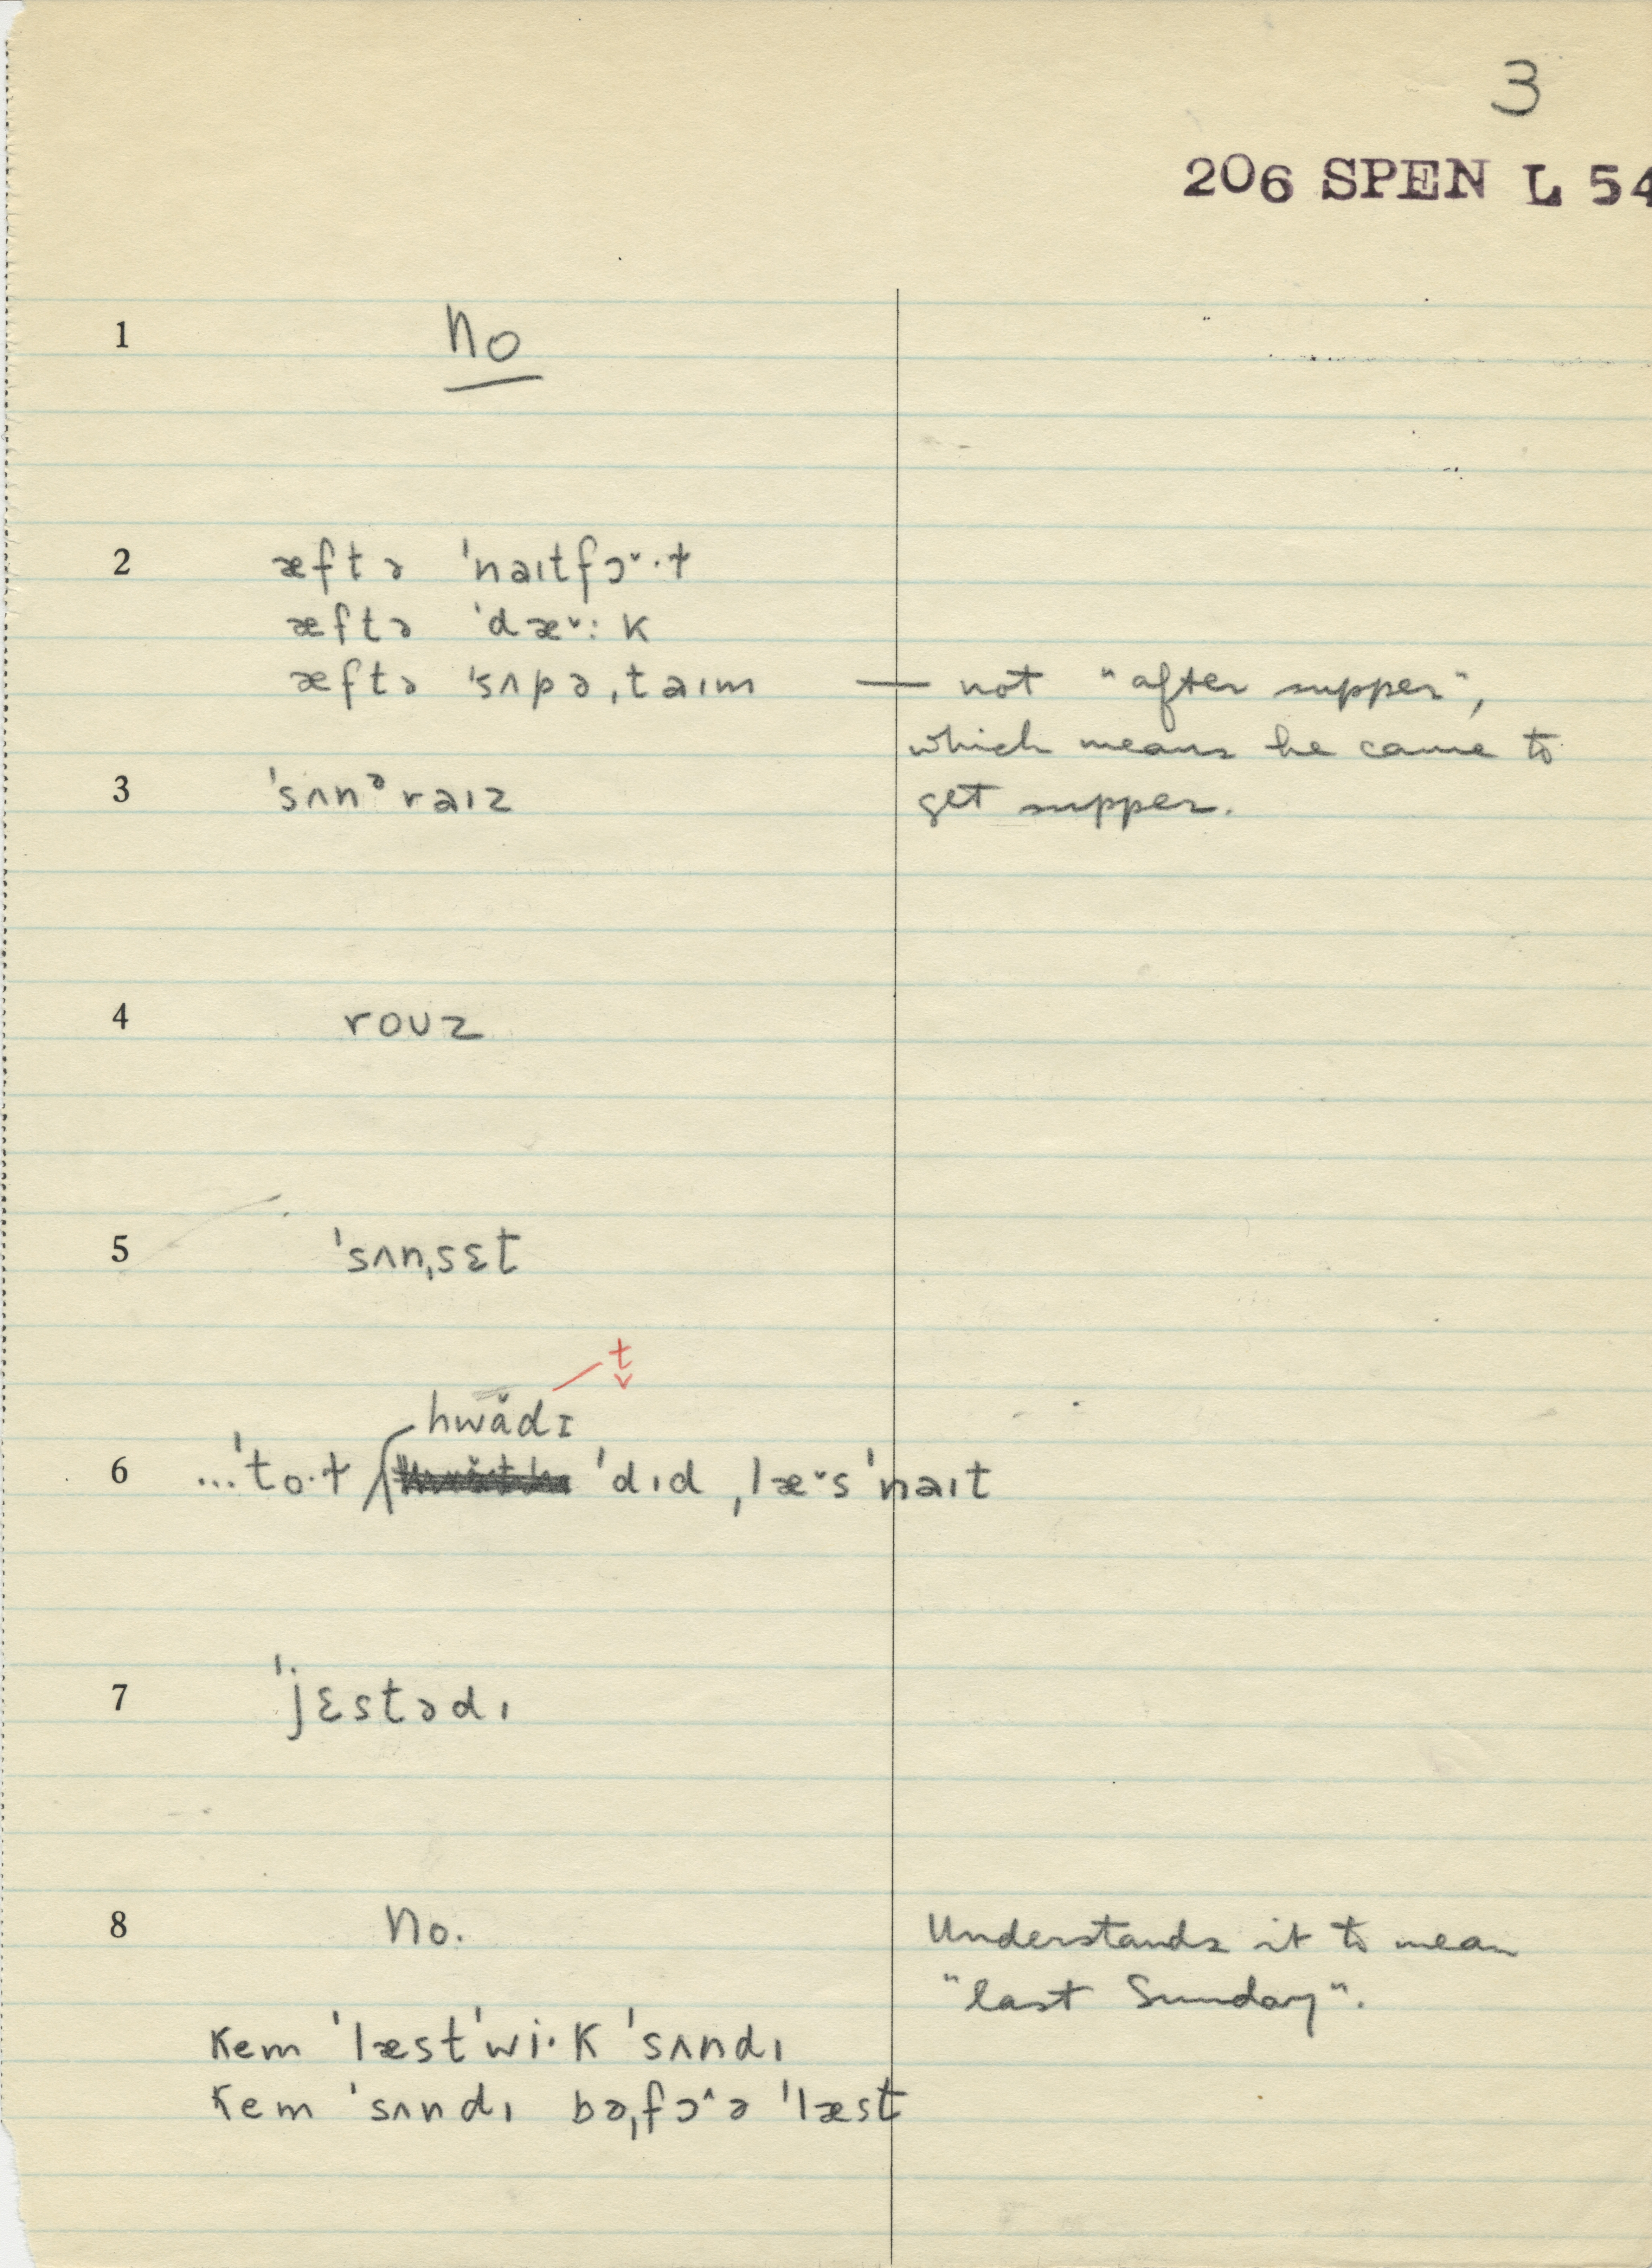 3
206 SPEN L 54
1 no
2 æftə ˈnaɪtfɔˇ·ɫ
æftə ˈdæˇːk
æftə ˈsʌpəˌtaɪm — not "after supper",
which means he came to
3 ˈsʌnᵊraɪz get supper.
4 roʊz
5 ˈsʌnˌsɛt
t̬
hwǎdɪ
6 ...ˈto·ɫ ˈdɪd ˌlæˇsˈnaɪt
7 ˈjɛstədɪ
8 no. Understands it to mean
"last Sunday".
kem ˈlæstˈwi·k ˈsʌndɪ
kem ˈsʌndɪ bəˌfɔˆə ˈlæst